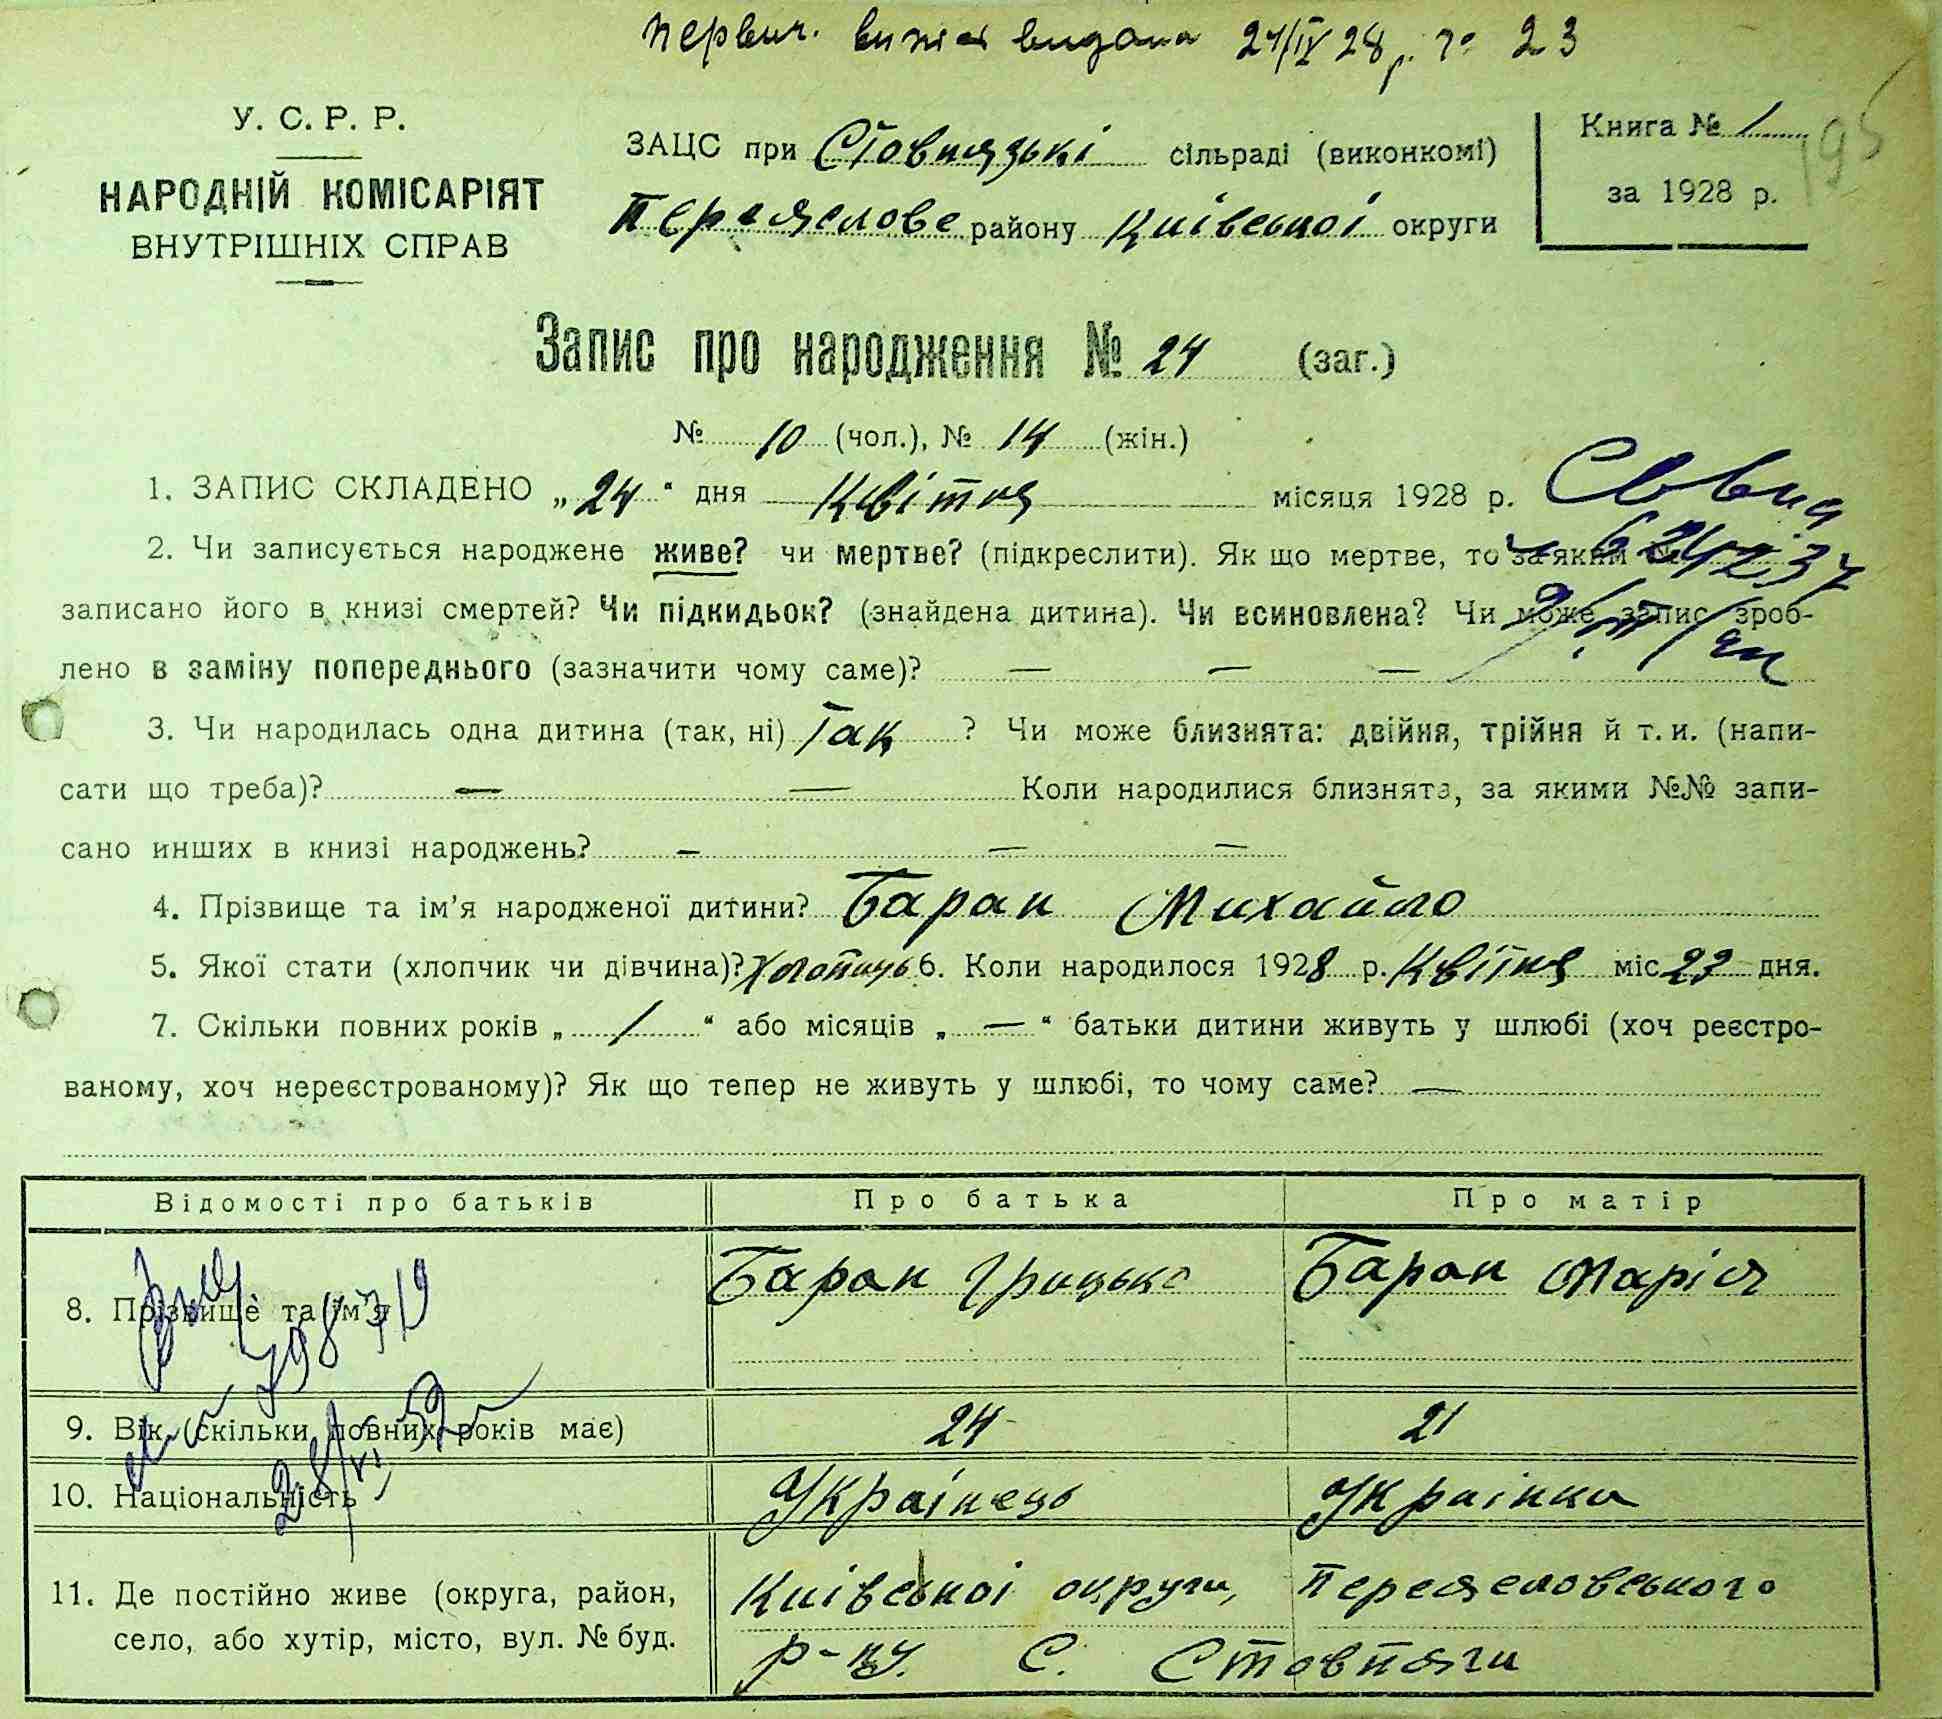 Первич. випис видана 24/IV 28 р. № 23
У. С. Р. Р.
НАРОДНІЙ КОМІСАРІЯТ
ВНУТРІШНІХ СПРАВ
ЗАЦС при Стовпязькі сільраді (виконкомі)
Переяслове району Київської округи
Книга № 1
за 1928 р.
195
Запис про народження № 24 (заг.)
№ 10 (чол.), № 14 (жін.)
1. ЗАПИС СКЛАДЕНО „24“ дня Квітня місяця 1928 р.
2. Чи записується народжене живе? чи мертве? (підкреслити). Як що мертве, то за яким №
записано його в книзі смертей? Чи підкидьок? (знайдена дитина). Чи всиновлена? Чи може запис зроб-
лено в заміну попереднього (зазначити чому саме)? — — —
3. Чи народилась одна дитина (так, ні) Так ? Чи може близнята: двійня, трійня й т. и. (напи-
сати що треба)? — — Коли народилися близнята, за якими №№ запи-
сано инших в книзі народжень? — — —
4. Прізвище та ім’я народженої дитини? Баран Михайло
5. Якої стати (хлопчик чи дівчина)? Хлопець 6. Коли народилося 1928 р. Квітня міс 23 дня.
7. Скільки повних років „ 1 “ або місяців „ — “ батьки дитини живуть у шлюбі (хоч реєстро-
ваному, хоч нереєстрованому)? Як що тепер не живуть у шлюбі, то чому саме? —
Відомості про батьків Про батька Про матір
8. Прізвище та ім’я Баран Грицько Баран Марія
9. Вік (скільки повних років має) 24 21
10. Національність Українець Українка
11. Де постійно живе (округа, район, Київської округи, Переяславського
село, або хутір, місто, вул. № буд. р-ну. С. Стовпяги